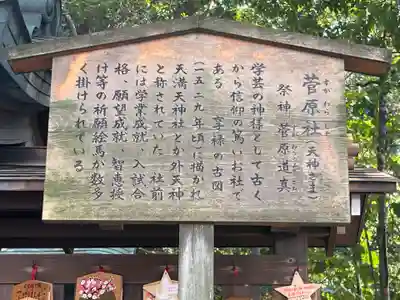 菅原社（天神さま）
すがわらしゃ
祭神 菅原道真
学芸の神様として古く
から信仰の篤いお社で
ある。享禄の古図
（一五二九年頃）に描かれ
天満天神社とも外天神
と称されていた。社前
には学業成就、入試合
格、願望成就、智恵授
け等の祈願絵馬が数多
く掛けられている